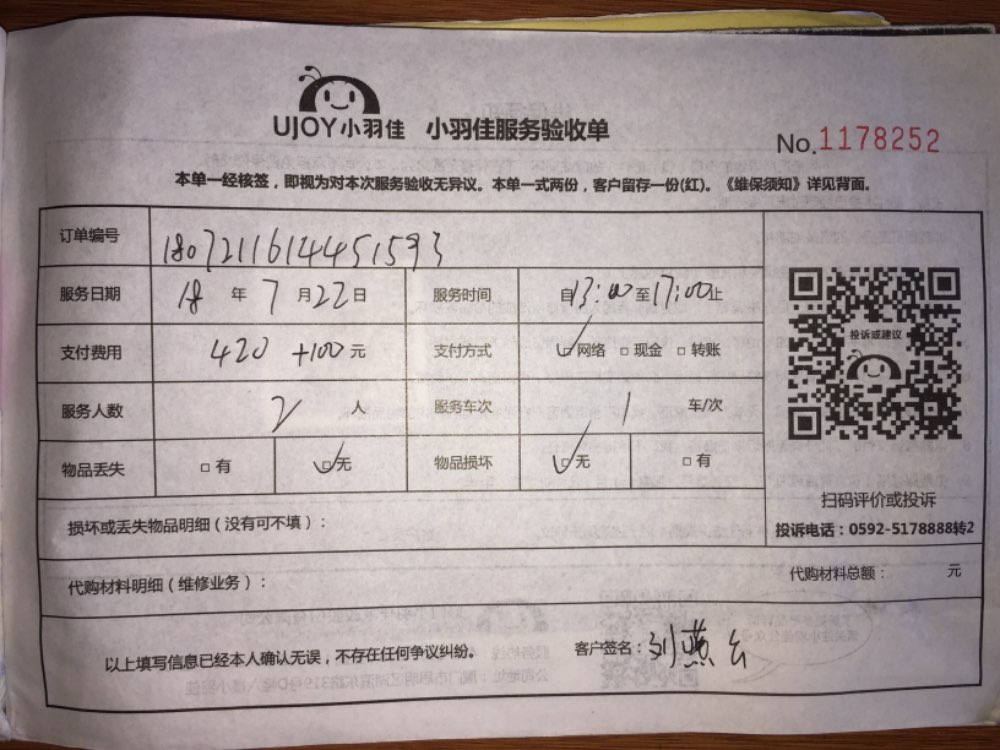 UJOY小羽佳 小羽佳服务验收单
No.1178252
本单一经核签，即视为对本次服务验收无异议。本单一式两份，客户留存一份(红)。《维保须知》详见背面。
订单编号 1807211614451593
服务日期 18 年 7 月 22 日 服务时间 自13:00至17:00止
支付费用 420 +100 元 支付方式 网络 现金 转账
投诉或建议
服务人数 2 人 服务车次 1 车/次
物品丢失 有 无 物品损坏 无 有
扫码评价或投诉
损坏或丢失物品明细（没有可不填）：
投诉电话：0592-5178888转2
代购材料明细（维修业务）：
代购材料总额： 元
以上填写信息已经本人确认无误，不存在任何争议纠纷。 客户签名：刘燕云